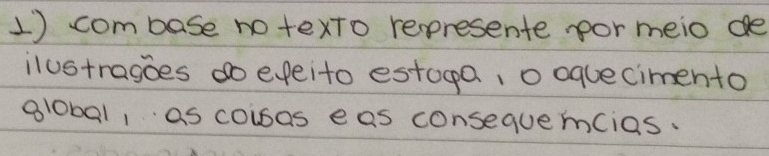 1) com base no texto represente por meio de
ilustrações do efeito estuga, o aquecimento
global, as coisas e as consequemcias.